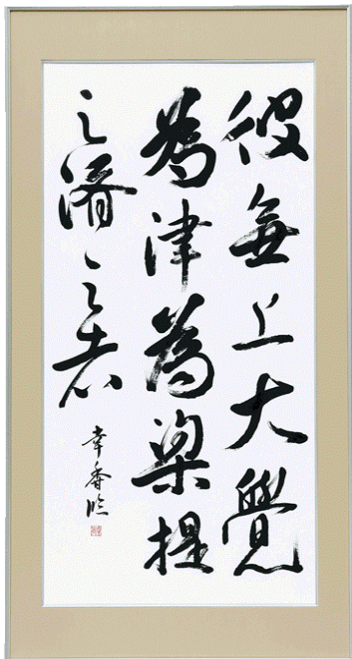 彼無上大覺
為津為梁提
之濟之者
幸香臨